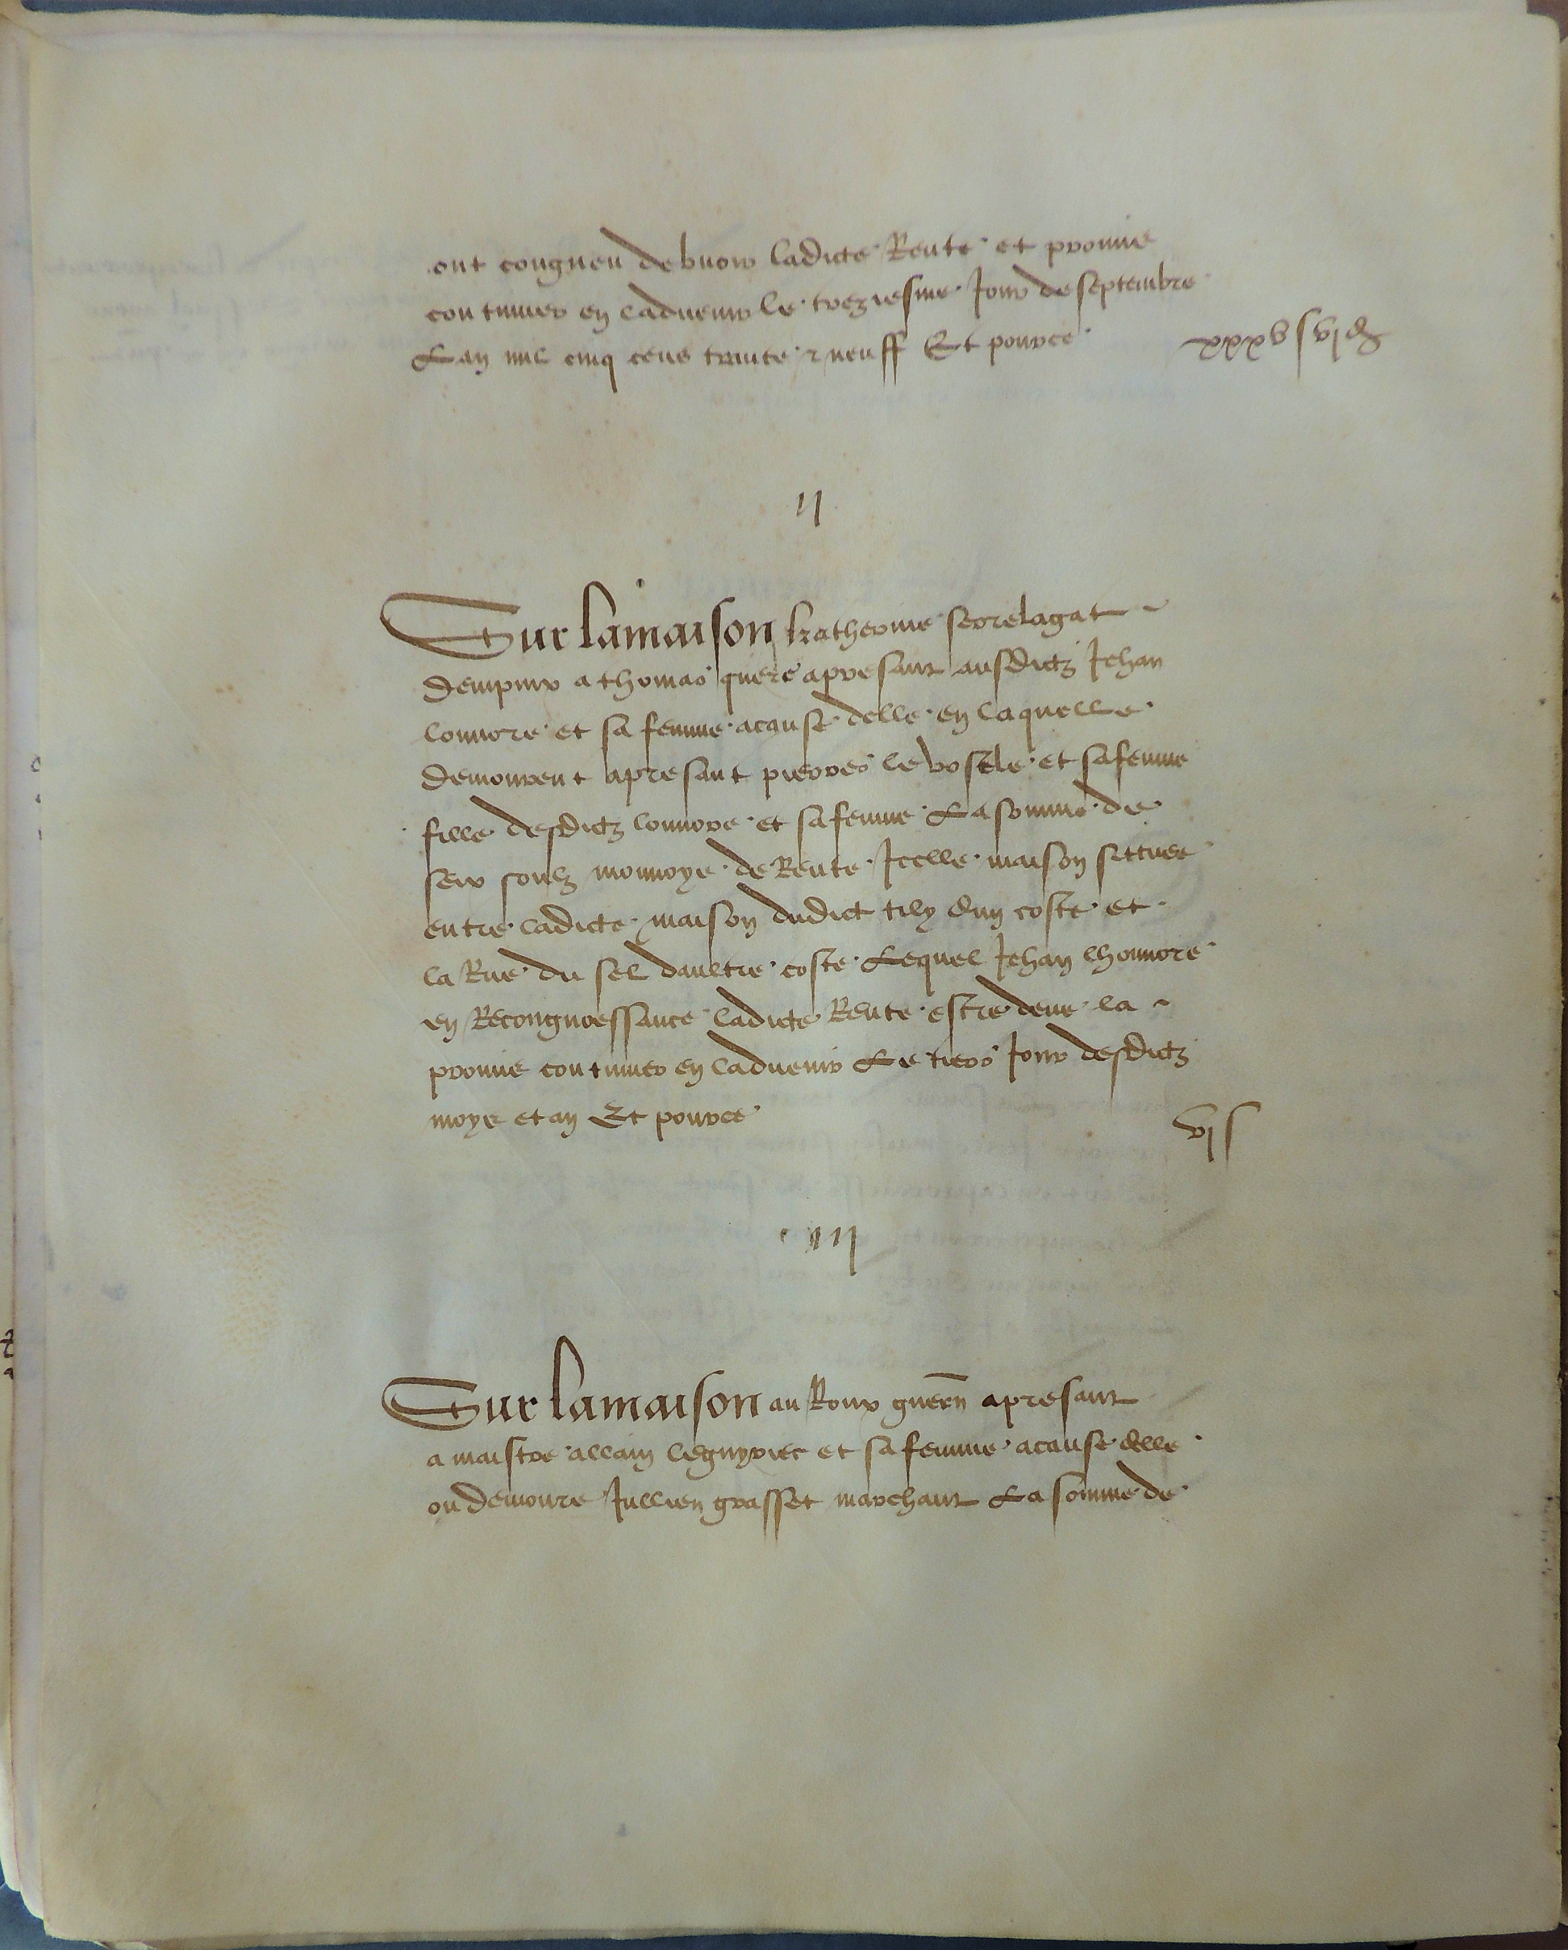 ont congneu debvoir ladicte Rente et promis
continuer en ladvenir le trezziesme Jour de septembre
Lan mil cinq cens trante & neuff Et pource xxxv s vj d
ij
Sur la maison katherine serrelagat
dempuix a thomas quere apresant ausdictz Jehan
lonnore et sa femme acause delle en laquelle
demourent apresant pierres le postle et sa femme
fille desdictz lonnore et sa femme La somme de
seix soulz monnoye de Rente Icelle maison sittuee
entre ladicte maison dudict tily dun coste et
la Rue du sel daultre coste Lequel Jehan lhonnore
en Recongnoessance ladicte Rente estre deue la
promis continuer en ladvenir Le tiers Jour desdictz
moys et an Et pource vj s
iij
Sur la maison au Roux guern apresant
a maistre allain leguyriec et sa femme acause delle
ou demoure Jullien grasset marchant La somme de